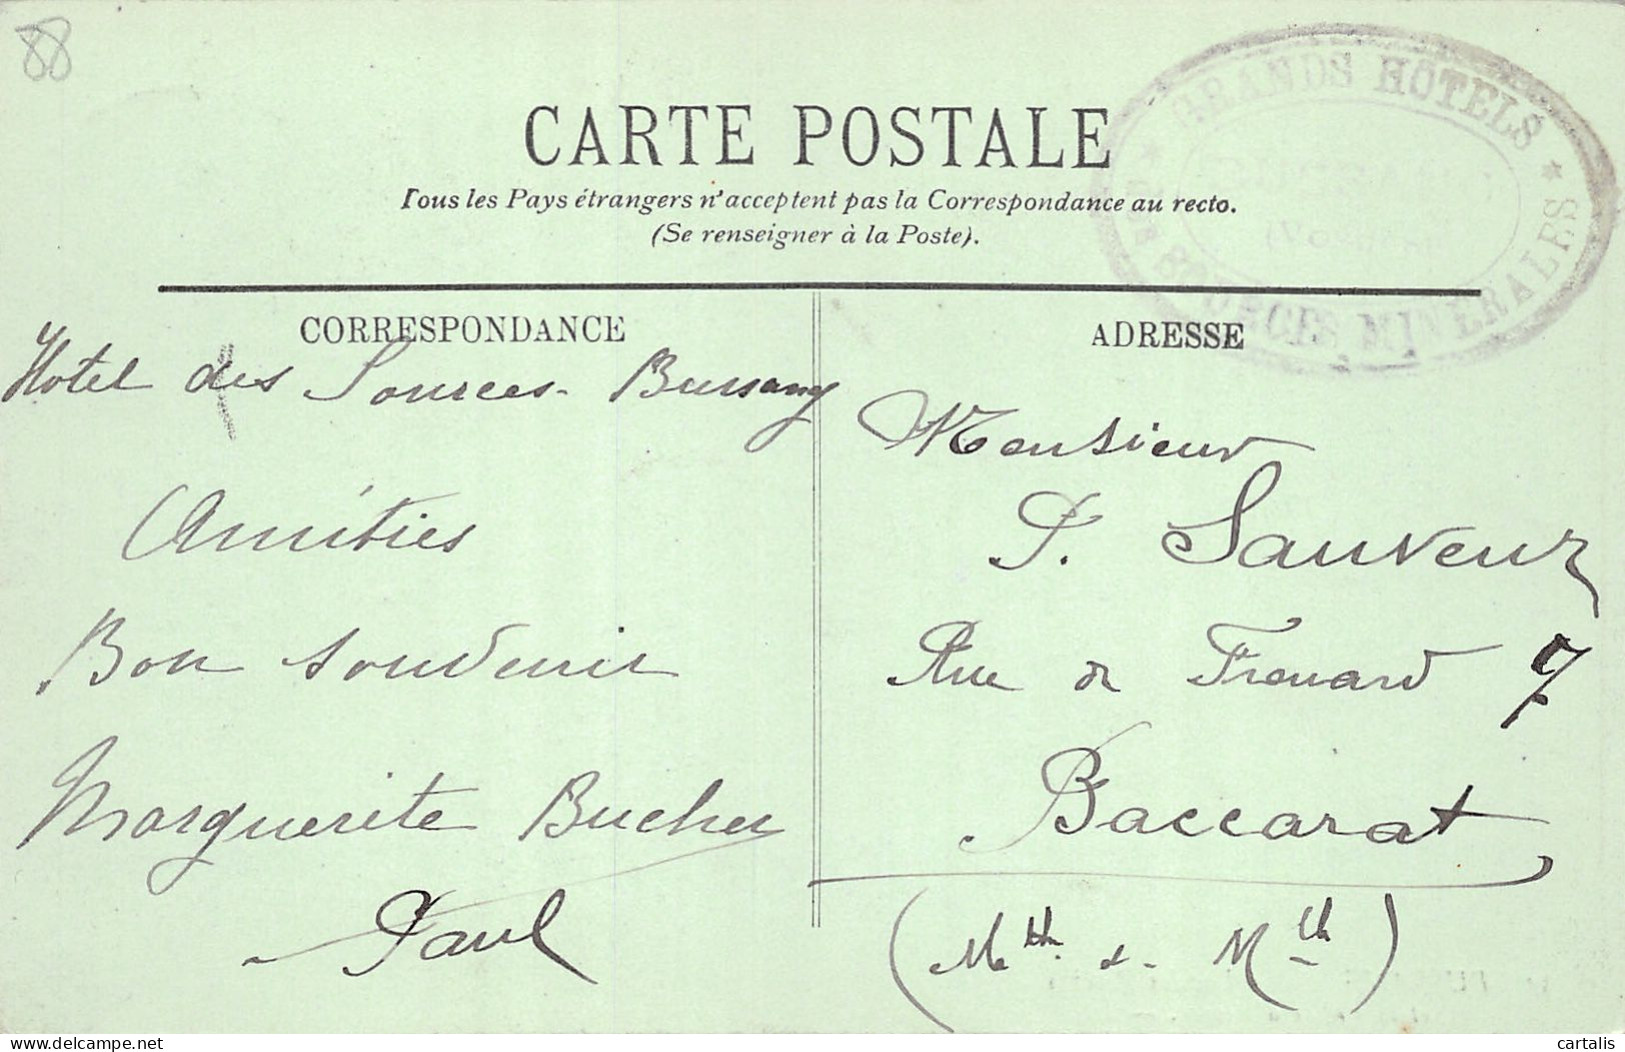 88
GRANDS HÔTELS
DES SOURCES MINÉRALES
CARTE POSTALE
Tous les Pays étrangers n'acceptent pas la Correspondance au recto.
(Se renseigner à la Poste).
CORRESPONDANCE
Hotel des Sources - Bussang
Amitiés
Bon souvenir
Marguerite Bucher
Paul
ADRESSE
Monsieur
P. Sauveur
Rue de Frouard 7
Baccarat
(M & M)
cartalis
delcampe.net